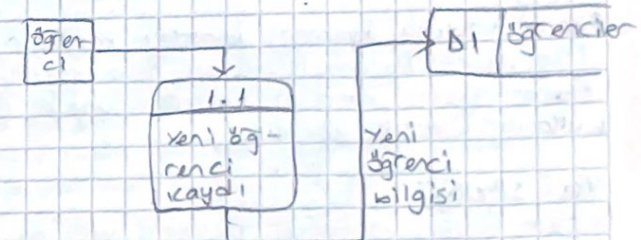 öğren
ci
D1 öğrenciler
1.1
yeni öğ-
renci
kaydı
yeni
öğrenci
bilgisi